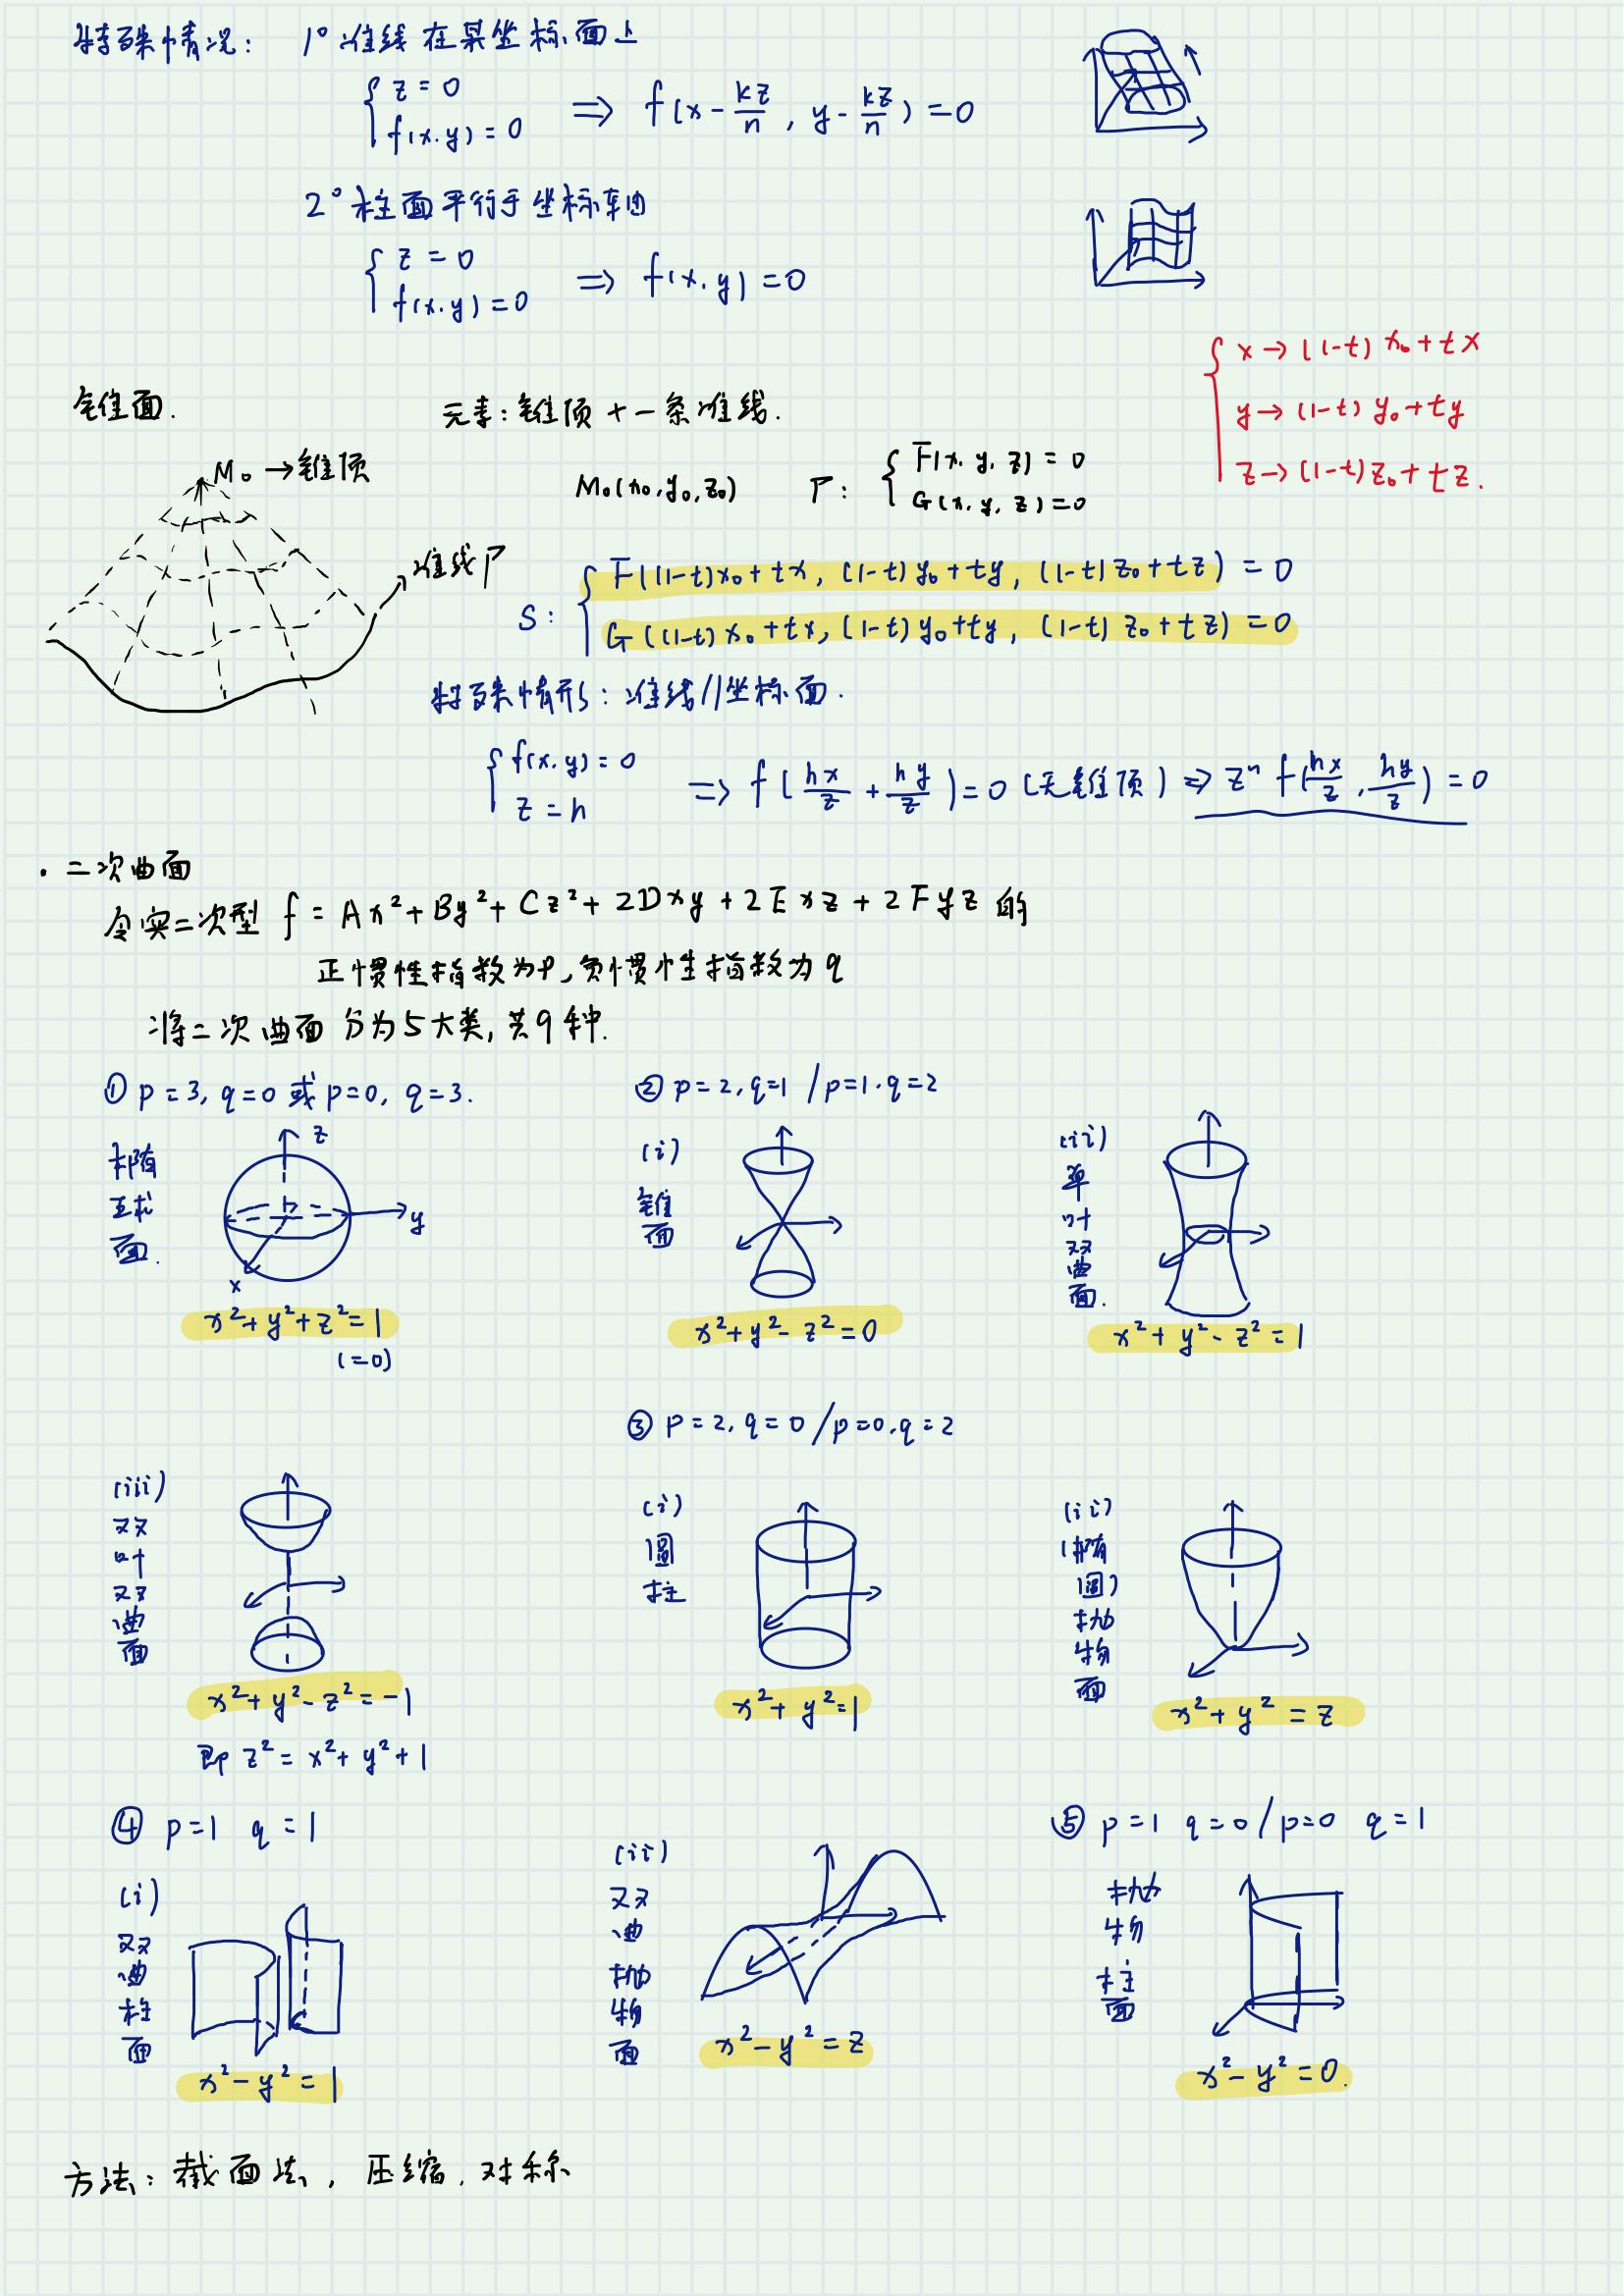 特殊情况: 1° 准线在某坐标面上
{ z = 0
f(x.y) = 0 ⇒ f(x - kz/n , y - kz/n) = 0
2° 柱面平行于坐标轴
{ z = 0
f(x.y) = 0 ⇒ f(x.y) = 0
{ x → (1-t) x₀ + tx
y → (1-t) y₀ + ty
z → (1-t) z₀ + tz.
锥面. 元素: 锥顶 + 一条准线.
M₀ → 锥顶
M₀(x₀,y₀,z₀) Γ: { F(x. y. z) = 0
G(x. y. z) = 0
准线Γ
S: { F((1-t)x₀ + tx, (1-t) y₀ + ty, (1-t) z₀ + tz) = 0
G((1-t) x₀ + tx, (1-t) y₀ + ty, (1-t) z₀ + tz) = 0
特殊情形: 准线//坐标面.
{ f(x.y) = 0
z = h ⇒ f(hx/z + hy/z) = 0 (无锥顶) ⇒ zⁿ f(hx/z , hy/z) = 0
· 二次曲面
令实二次型 f = Ax² + By² + Cz² + 2Dxy + 2Exz + 2Fyz 的
正惯性指数为p, 负惯性指数为q
将二次曲面分为5大类, 共9种.
① p = 3, q = 0 或 p = 0, q = 3.
② p = 2, q = 1 / p = 1. q = 2
椭球面.
z
y
x
x² + y² + z² = 1
(=0)
(i)
锥面
x² + y² - z² = 0
(ii)
单叶双曲面.
x² + y² - z² = 1
③ p = 2. q = 0 / p = 0. q = 2
(iii)
双叶双曲面
x² + y² - z² = -1
即 z² = x² + y² + 1
(i)
圆柱
x² + y² = 1
(ii)
(椭圆)抛物面
x² + y² = z
④ p = 1 q = 1
⑤ p = 1 q = 0 / p = 0 q = 1
(i)
双曲柱面
x² - y² = 1
(ii)
双曲抛物面
x² - y² = z
抛物柱面
x² - y² = 0.
方法: 截面法, 压缩, 对称